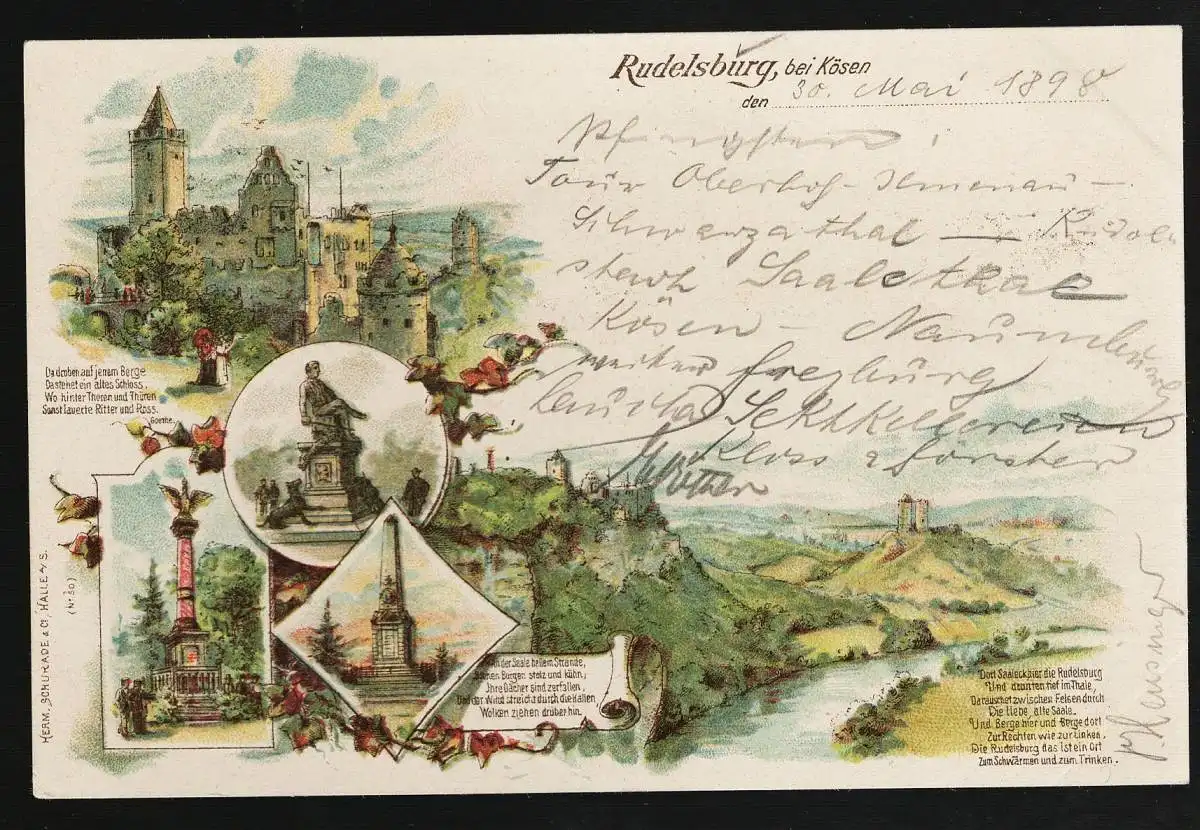 Rudelsburg, bei Kösen
den 30. Mai 1898
Pfingsten
Tour Oberhof - Ilmenau -
Schwarzathal — Rudol
Saalethal
Kösen - Naumburg
Freyburg
Sektkellereien
Kloss & Förster
Da droben auf jenem Berge
Da stehet ein altes Schloss,
Wo hinter Thoren und Thüren
Sonst lauerte Ritter und Ross.
Goethe.
An der Saale hellem Strande,
Stehen Burgen stolz und kühn,
Ihre Dächer sind zerfallen,
Und der Wind streicht durch die Hallen,
Wolken ziehen drüber hin.
Dort Saaleck, hier die Rudelsburg
Und drunten tief im Thale,
Da rauschet zwischen Felsen durch
Die liebe, alte Saale.
Und Berge hier und Berge dort
Zur Rechten wie zur Linken,
Die Rudelsburg das ist ein Ort
Zum Schwärmen und zum Trinken.
HERM. SCHURADE & Co, HALLE A/S.
(No 30)